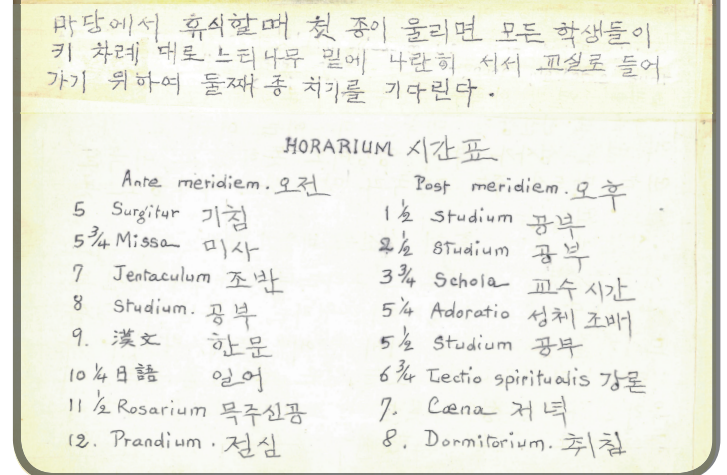 마당에서 휴식할때 첫 종이 울리면 모든 학생들이
키 차례 대로 느티나무 밑에 나란히 서서 교실로 들어
가기 위하여 둘째 종 치기를 기다린다.
HORARIUM 시간표
Ante meridiem. 오전
5 Surgitur 기침
5 3/4 Missa 미사
7 Jentaculum 조반
8 Studium. 공부
9. 漢文 한문
10 1/4 日語 일어
11 1/2 Rosarium 묵주신공
12. Prandium. 점심
Post meridiem. 오후
1 1/2 Studium 공부
2 1/2 Studium 공부
3 3/4 Schola 교수 시간
5 1/4 Adoratio 성체 조배
5 1/2 Studium 공부
6 3/4 Lectio spiritualis 강론
7. Cœna 저녁
8. Dormitorium. 취침